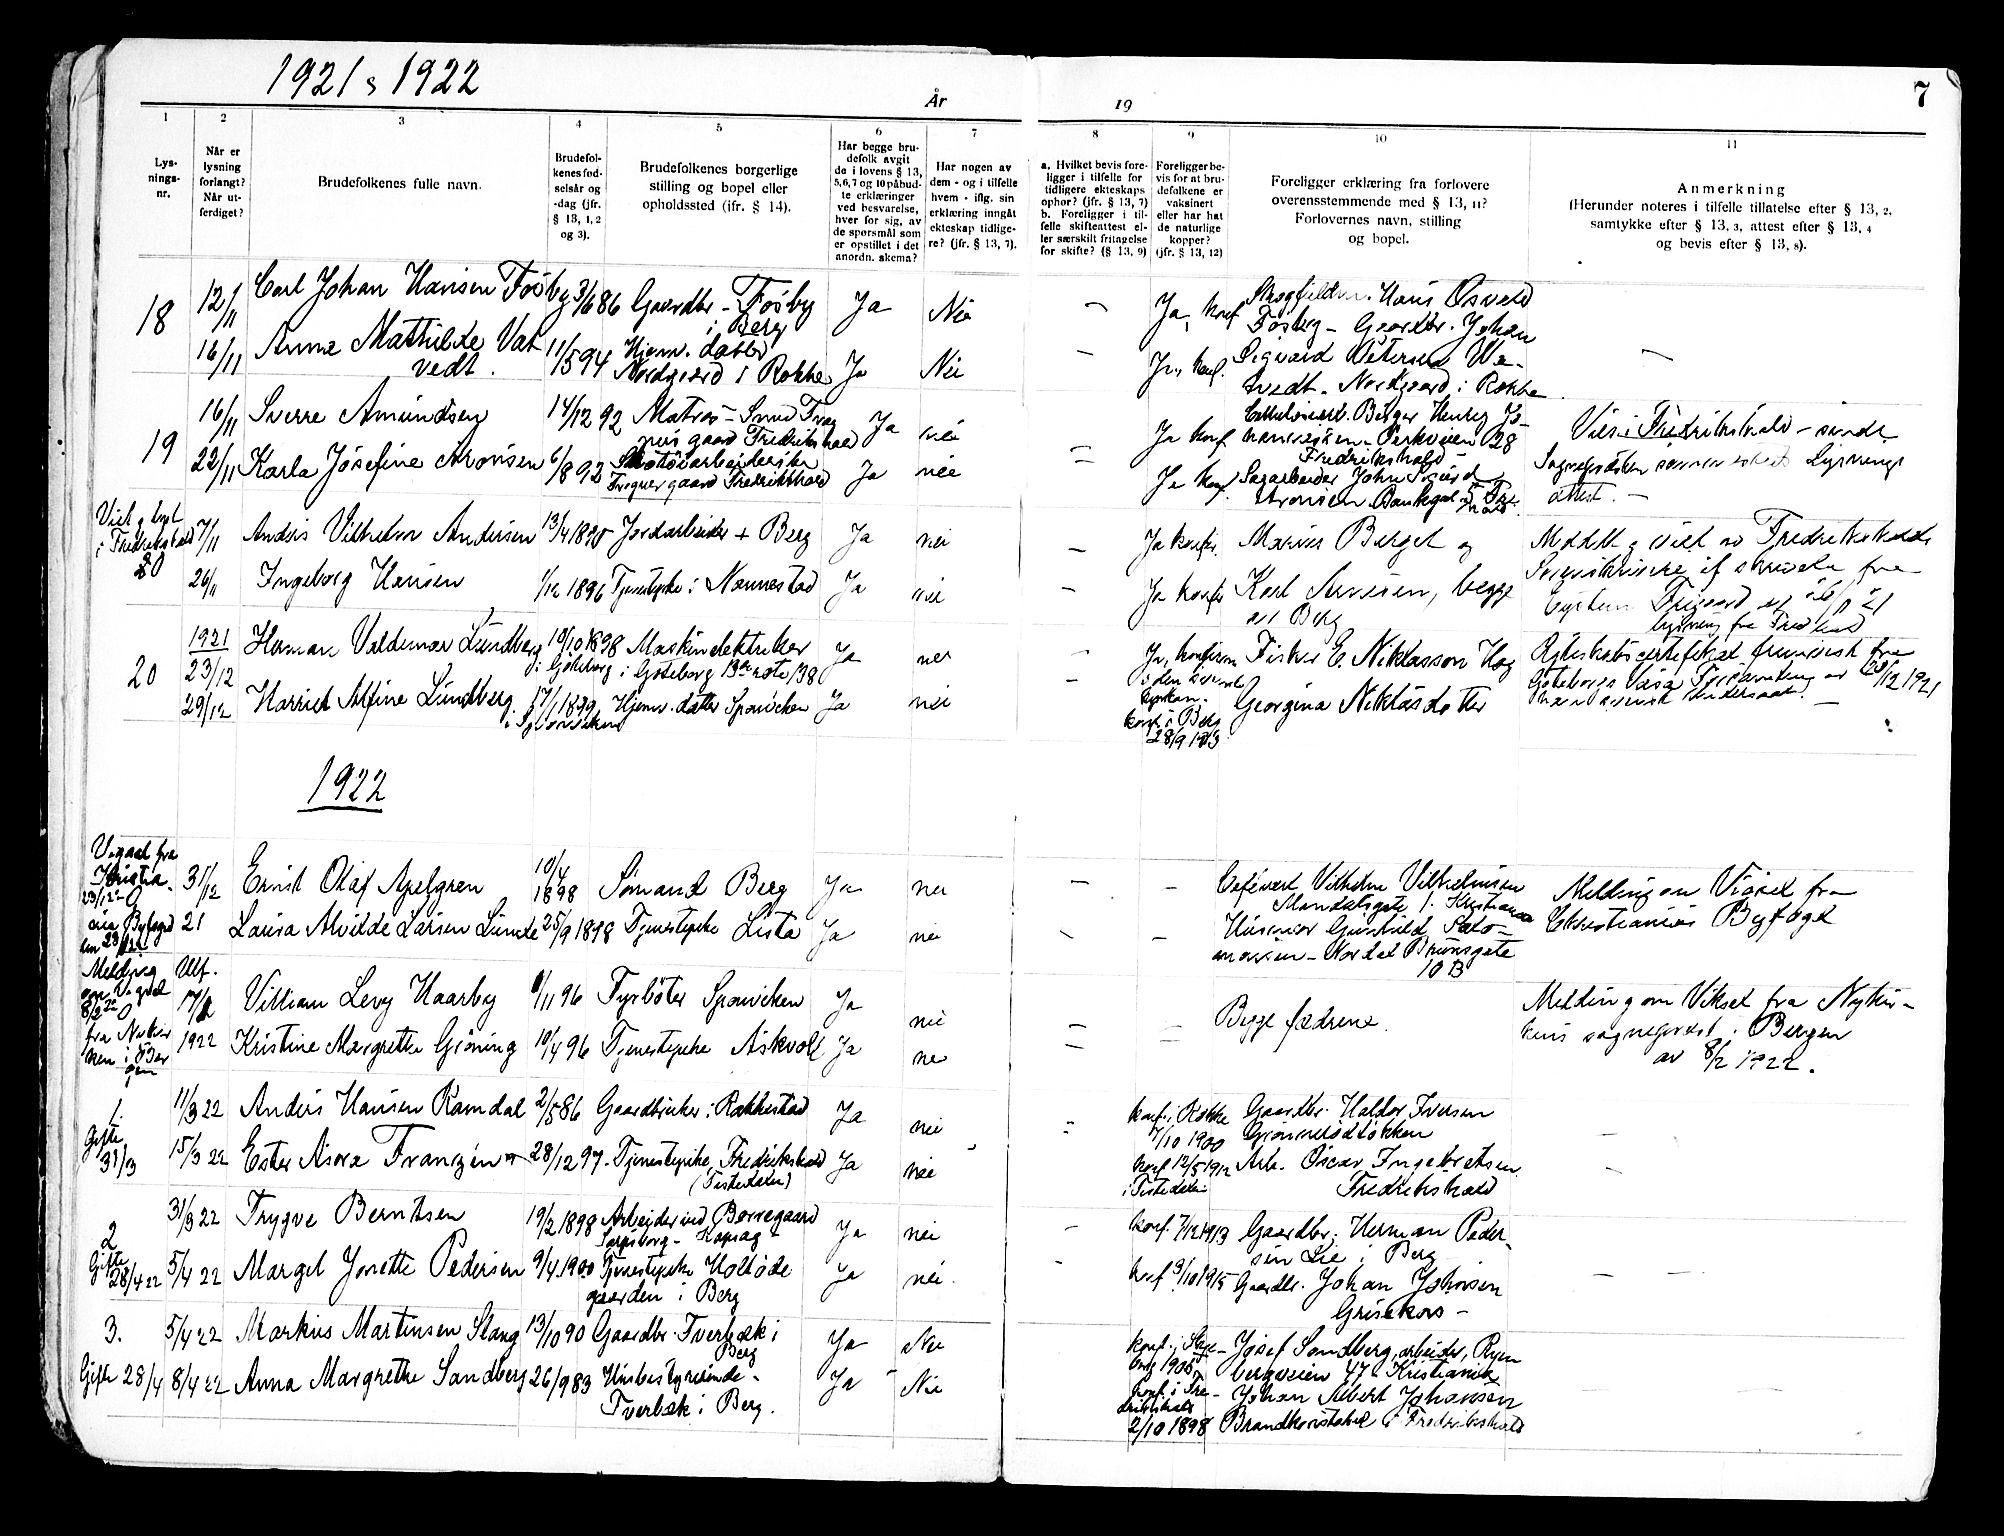 1921 s 1922
År
19
7
1
2
3
4
5
6
7
8
9
10
11
Lys-
nings-
nr.
Når er
lysning
forlangt?
Når ut-
ferdiget?
Brudefolkenes fulle navn.
Brudefol-
kenes fød-
selsår og
-dag (jfr.
§ 13, 1, 2
og 3).
Brudefolkenes borgerlige
stilling og bopel eller
opholdssted (ifr. § 14).
Har begge bru-
defolk avgit
de i lovens § 13,
5,6,7 og 10 påbud-
te erklæringer
ved besvarelse,
hver for sig, av
de spørsmål som
er opstillet i det
anordn. skema?
Har nogen av
dem - og i tilfelle
hvem - iflg. sin
erklæring inngått
ekteskap tidlige-
re? (jfr. § 13, 7).
a. Hvilket bevis fore-
ligger i tilfelle for
tidligere ekteskaps
ophør? (jfr. § 13, 7)
b. Foreligger i til-
felle skifteattest el-
ler særskilt fritagelse
for skifte? (§ 13, 9)
Foreligger be-
vis for at bru-
defolkene er
vaksinert
eller har hat
de naturlige
kopper?
(jfr. § 13, 12)
Foreligger erklæring fra forlovere
overensstemmende med § 13, 11?
Forlovernes navn, stilling
og bopel.
Anmerkning
(Herunder noteres i tilfelle tillatelse efter § 13, 2,
samtykke efter § 13, 3, attest efter § 13, 4
og bevis efter § 13, 8).
18
12/11
Carl Johan Hansen Fosby
3/6 86
Gaardbr - Fosby
i Berg
Ja
Nei
Ja, konf
Hans Osvald
Fosby - Gaardbr. Johan
16/11
Anna Mathilde Vat-
vedt.
11/5 94
Hjem. datter
Nordgaard i Rokke
Ja
Nei
Ja, konf.
Sigvard Petersen Va-
tvedt - Nordgaard i Rokke
19
16/11
Sverre Amundsen
14/12 92
Matros -
gaard Fredrikshald
Ja
nei
Ja konf
Birger Henry Jo-
28
Fredrikshald -
22/11
Karla Josefine Aronsen
6/8 92
Skotöiarbeiderske
gaard Fredrikshald
Ja
nei
Ja konf.
Sagarbeider John Sigurd
Aronsen
Vies i Fredrikshald -
attest. -
Viet g lyst
i Fredrikshald
20
7/11
Anders Vilhelm Andersen
13/4 1820
Jordarbeider + Berg
Ja
nei
Ja konf.
Marius Berget og
26/11
Ingeborg Hansen
1/12 1896
Tjenestepike i Nannestad
Ja
nei
Ja konfr
Karl Arnesen, begge
av Berg
Meddelt g viet av Fredrikshalds
Sorenskriver if skrivelse fra
20
1921
23/12
Herman Valdemar Lundberg
10/10 1898
i Göteborg
Maskinelektriker
i Göteborg 13de rote 138
Ja
nei
Ja, konfirm
i den svenske
kyrkan.
Fisker E. Niklasson Hog
29/12
Harriet Alfine Lundberg.
17/1 1899
i Sponviken
Hjemv. datter Sponviken
Ja
nei
konf. i Berg
28/9 1913
Georgina Niklasdotter
Göteborgs Vasa Församling av 23/12 1921
1922
31/12
Ernst Olaf Apelgren
10/4
1898
Sömand Berg
Ja
nei
Cafévert Vilhelm Vilhelmsen
Mandalsgate 1. Kristiania
Melding om Vigsel fra
Christiania Byfogd
21
Laura Alvilde Larsen Lunde
25/9 1898
Tjenestepike Lista
Ja
nei
Husmor Gunhild Salo-
monsen - Nordal Brunsgate
10 B
Melding
om Vigsel
8/2 22
i Ber
gen
Utf.
17/2
William Levy Haarby
11 96
Fyrböter Sponviken
Ja
nei
Begge fædrene.
1922
Kristine Margrethe Gröning
10/4 96
Tjenestepike Askvoll
Ja
nei
Melding om Viksel fra Nykir-
kens sogneprest i Bergen
av 8/2 1922.
1.
Gifte
31/3
11/3 22
Anders Hansen Ramdal
2/5 86
Gaardbruker i Rakkestad
Ja
nei
konf. i Rokke
7/10 1900
Gaardbr. Haldor Iversen
15/3 22
Ester Asora Franzén
28/12 97
Tjenestepike, Fredrikshald
(Tistedalen)
Ja
nei
konf 12/5 1912
i Tistedalen
Arb. Oscar Ingebretsen
Fredrikshald
2
Gifte
28/4 22
31/3 22
Trygve Berntsen
19/2 1898
Arbeider ved Borregaard
Sarpsborg -
Ja
nei
konf. 7/12 1913
Gaardbr. Herman Peder-
sen Lie i Berg
5/4 22
Margit Jonette Pedersen
9/4 1900
Tjenestepike Holtöde
gaarden i Berg
Ja
nei.
konf 3/10 1915
Gaardbr. Johan Johnsen
Grisekors -
3.
5/4 22
Markus Martinsen Stang
13/10 90
Gaardbr. Tverbæk i
Berg
Ja
Nei
Josef Sandberg, arbeider, Ryen
bergveien 47 Kristiania
Gifte 28/4
8/4 22
Anna Margrethe Sandberg
26/9 83
Husbestyrerinde -
Tverbæk i Berg.
Ja
Nei
konf. i Fre-
drikshald
2/10 1898
Johan Albert Johansen
Brandkonstabel i Fredrikshald